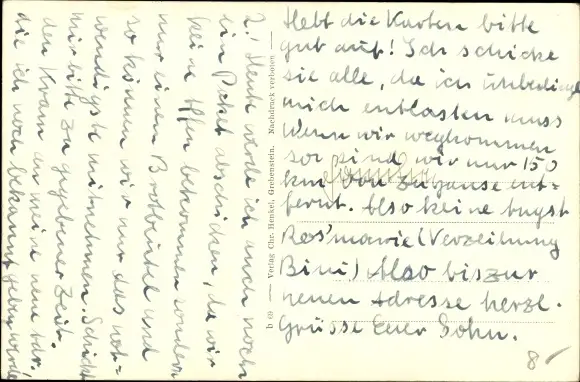 Hebt die Karten bitte
gut auf! Ich schicke
sie alle, da ich unbedingt
mich entlasten muss
Wenn wir wegkommen
so sind wir nur 150
km von zuhause ent-
fernt. Also keine Angst
Ros'marie (Verzeihung
Bini) Also bis zur
neuen Adresse herzl.
Grüsse Euer Sohn.
8
b 69 — Verlag Chr. Henkel, Grebenstein. Nachdruck verboten —
2.! Heute werde ich auch noch
ein Paket abschicken, da wir
keine Affen bekommen sondern
nur einen Brotbeutel und
so können wir nur das not-
wendigste mitnehmen. Schickt
mir bitte zu gegebener Zeit
den Kram an meine neue Adr.
die ich noch bekannt geben werde